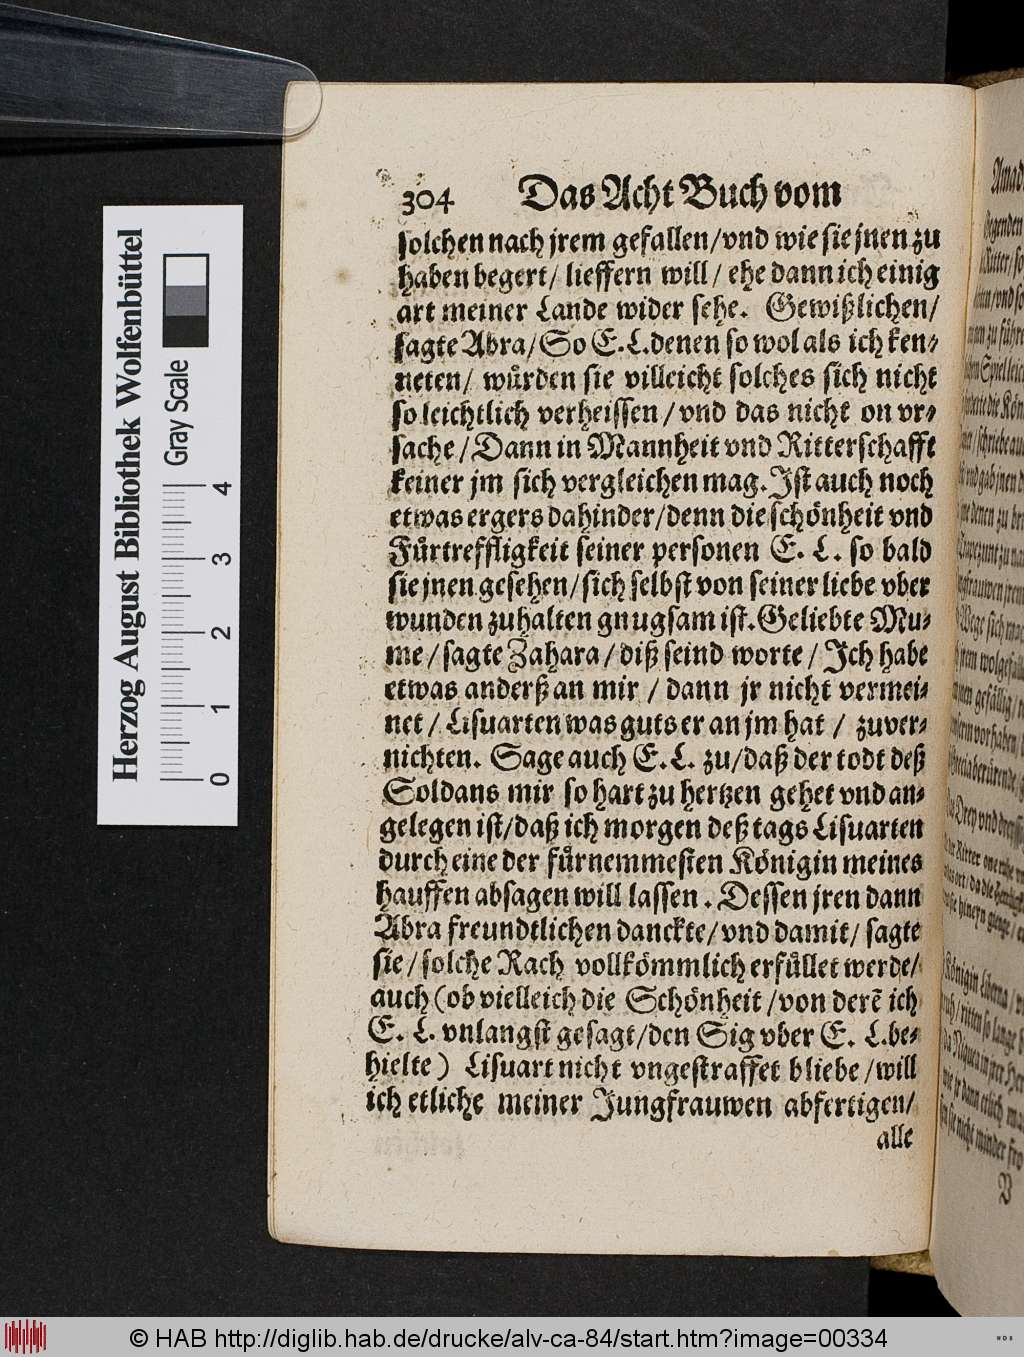 304 Das Acht Buch vom
solchen nach jrem gefallen/vnd wie sie jnen zu
haben begert/ lieffern will/ ehe dann ich einig
art meiner Lande wider sehe. Gewißlichen/
sagte Abra/So E.L.denen so wol als ich ken-
neten/ würden sie villeicht solches sich nicht
so leichtlich verheissen/vnd das nicht on vr-
sache/Dann in Mannheit vnd Ritterschafft
keiner jm sich vergleichen mag. Ist auch noch
etwas ergers dahinder/denn die schönheit vnd
Fürtreffligkeit seiner personen E. L. so bald
sie jnen gesehen/sich selbst von seiner liebe vber
wunden zuhalten gnugsam ist. Geliebte Mu-
me/sagte Zahara/diß seind worte/Ich habe
etwas anderß an mir/dann jr nicht vermei-
net/Lisuarten was guts er an jm hat/ zuver-
nichten. Sage auch E.L. zu/daß der todt deß
Soldans mir so hart zu hertzen gehet vnd an-
gelegen ist/daß ich morgen deß tags Lisuarten
durch eine der fürnemmesten Königin meines
hauffen absagen will lassen. Dessen jren dann
Abra freundtlichen danckte/vnd damit/ sagte
sie/solche Rach vollkömmlich erfüllet werde/
auch (ob vielleich die Schönheit/von derẽ ich
E. L. vnlangst gesagt/den Sig vber E. L.be-
hielte) Lisuart nicht vngestraffet bliebe/will
ich etliche meiner Jungfrauwen abfertigen/
alle
Herzog August Bibliothek Wolfenbüttel
Gray Scale
0 1 2 3 4
© HAB http://diglib.hab.de/drucke/alv-ca-84/start.htm?image=00334